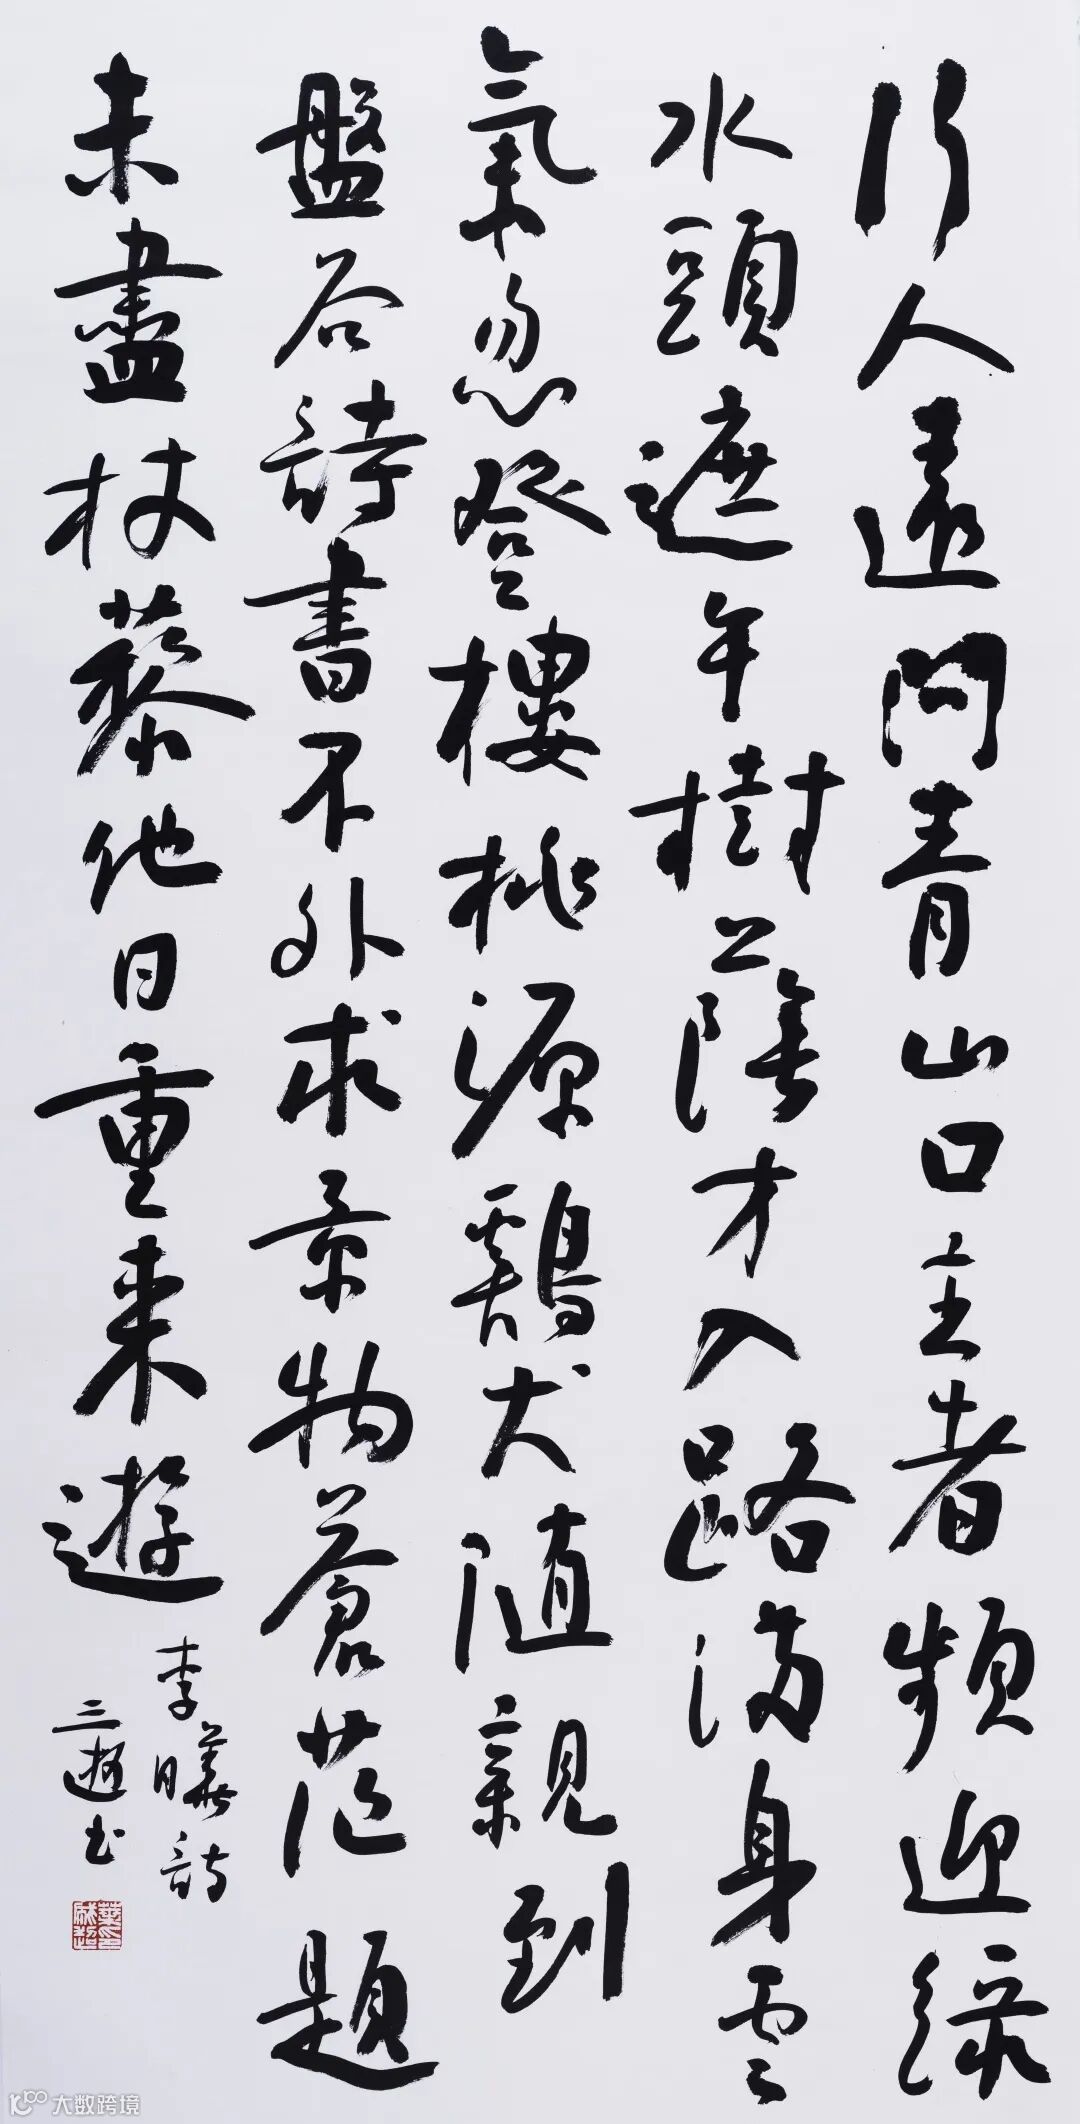 行人遠問青山口主者頻迎綠
水頭遮午樹蔭才入路滿身雲
氣忽登樓桃源鷄犬随親到
盤谷詩書不外求景物蒼茫題
未盡杖藜他日重来遊
李曄詩
三趣书
大数跨境